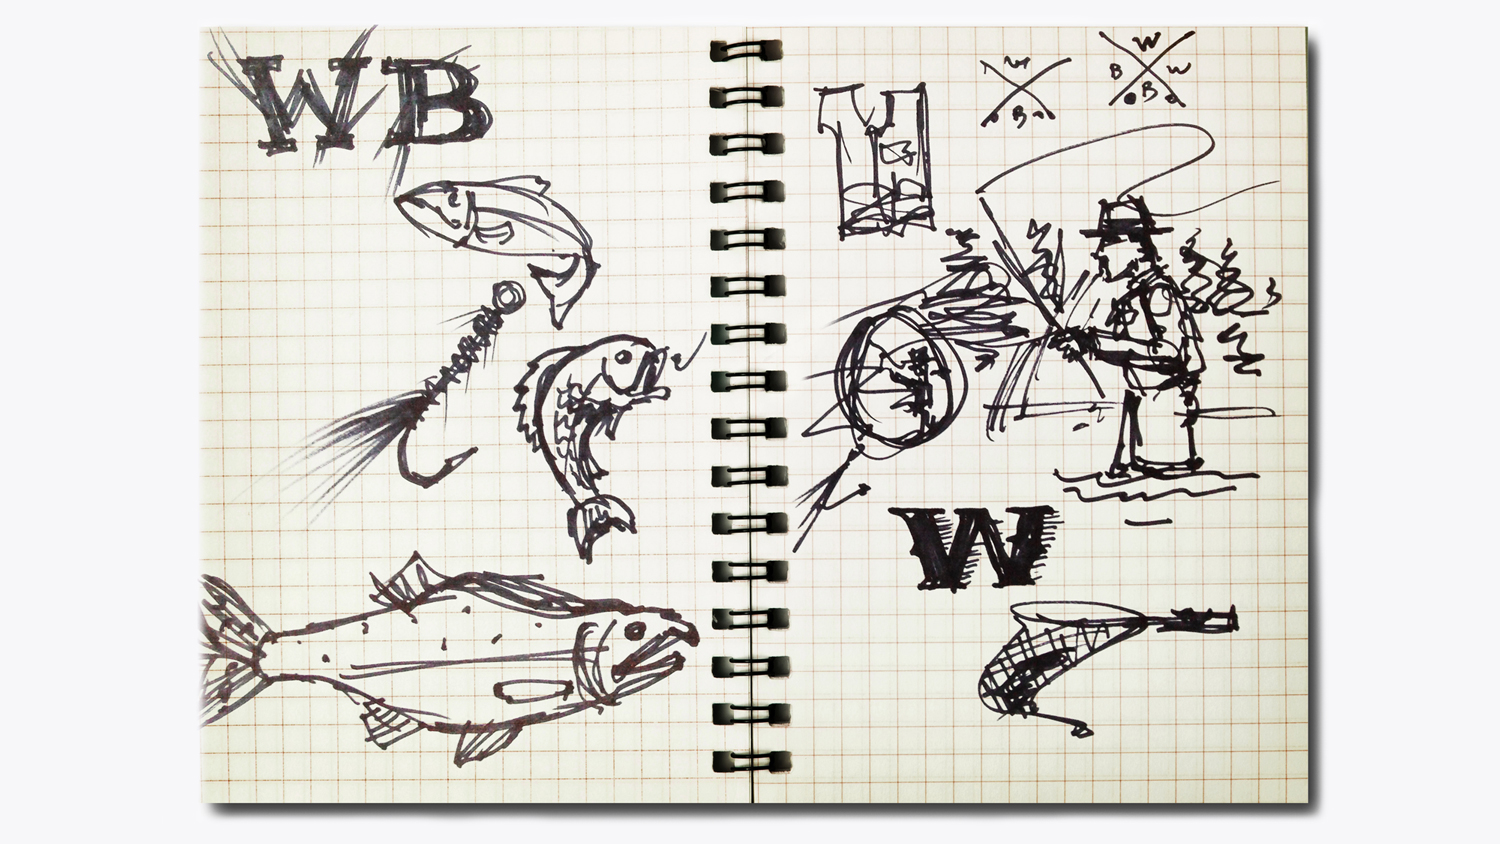 WB
W
B
W
B W
B
W